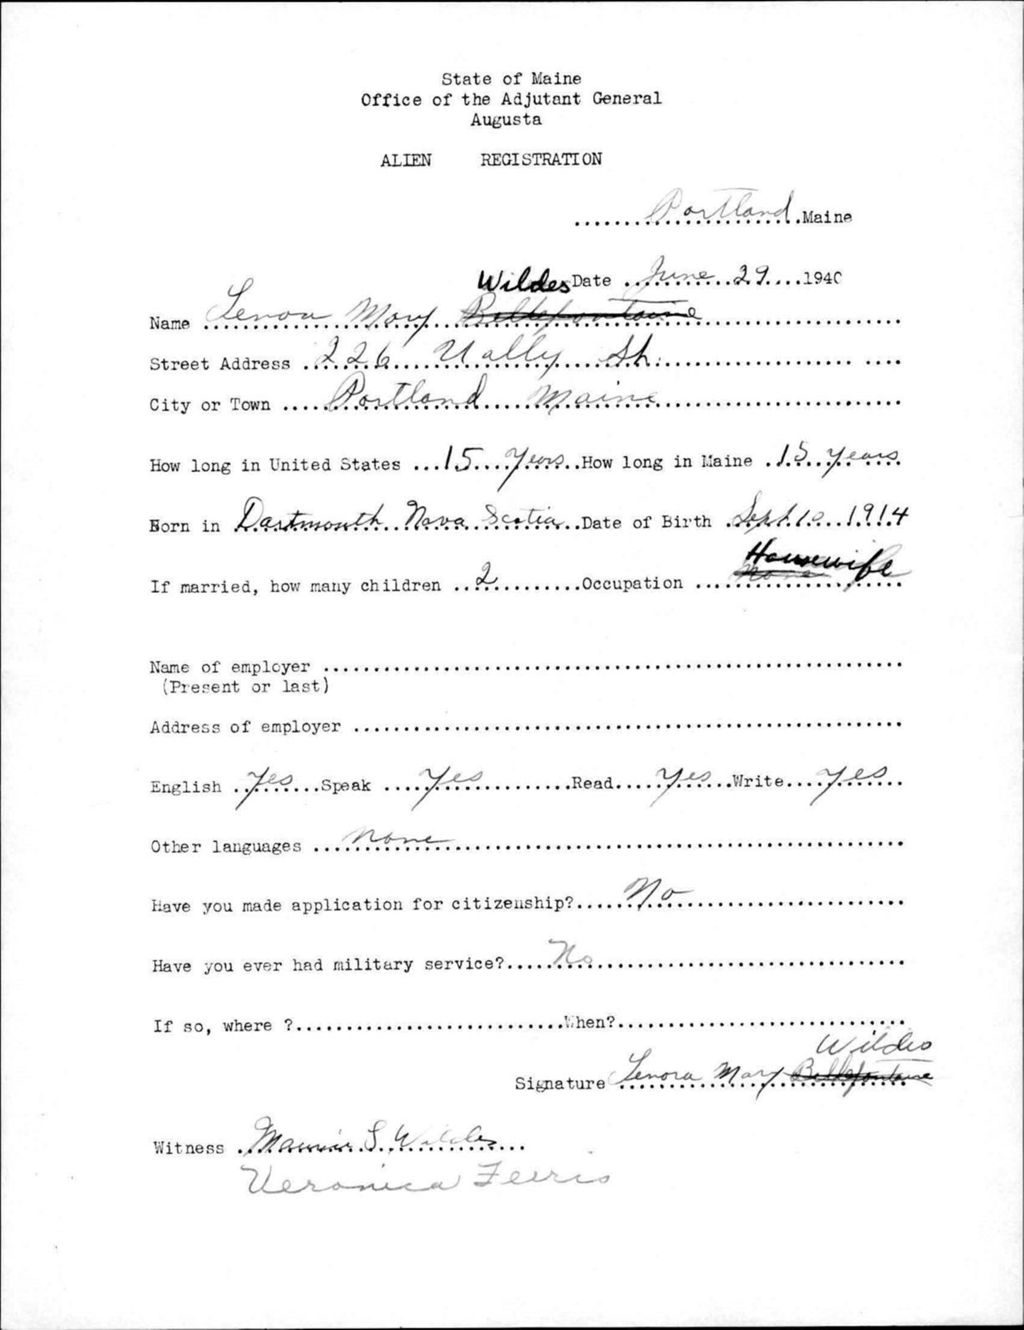 State of Maine
Office of the Adjutant General
Augusta
ALIEN REGISTRATION
Portland Maine
Wildes Date June 29 1940
Name Lenora Mary Bellefontaine
Street Address 226 St.
City or Town Portland Maine
How long in United States 15 Years How long in Maine 15 years
Born in Dartmouth Nova Scotia Date of Birth Sept 10 1914
Housewife
If married, how many children 2 Occupation None
Name of employer
(Present or last)
Address of employer
English Yes Speak Yes Read Yes Write Yes
Other languages None
Have you made application for citizenship? No
Have you ever had military service? No
If so, where ? When?
Wildes
Signature Lenora Mary Bellefontaine
Witness S. Wildes
Veronica